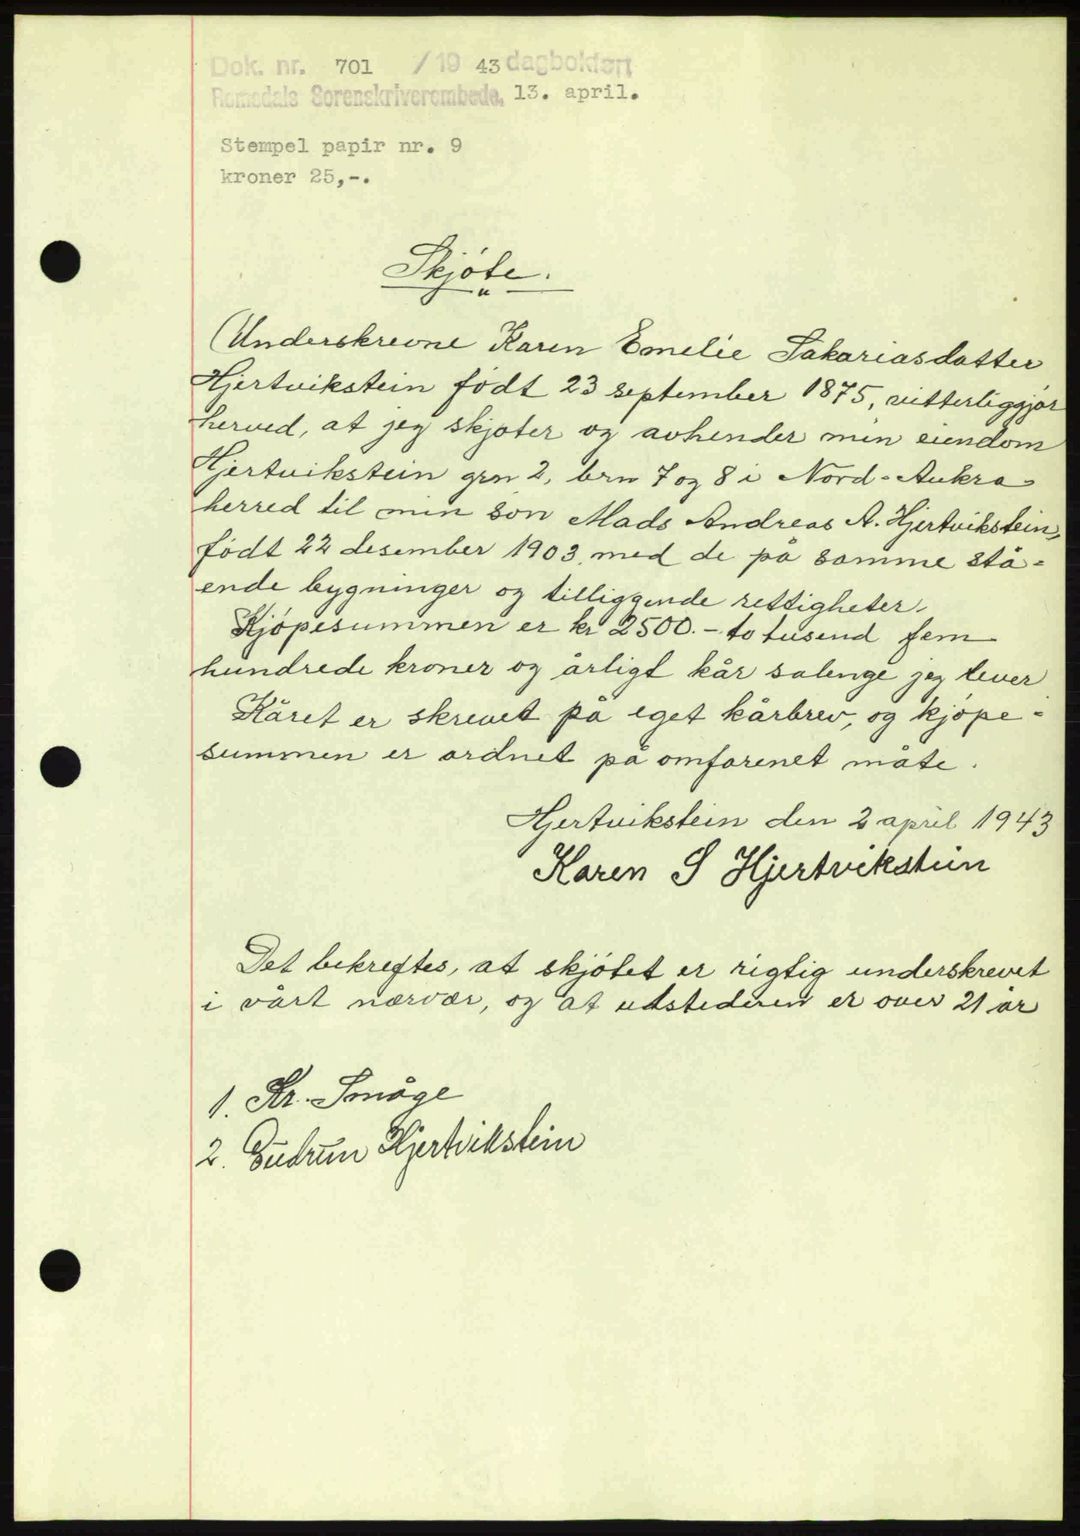 Dok. nr. 701 / 19 43 dagbokført
Romsdals Sorenskriverembede, 13. april.
Stempel papir nr. 9
kroner 25,-.
Skjøte.
Underskrevne Karen Emelie Sakariasdatter
Hjertvikstein født 23 september 1875, vitterliggjør
herved, at jeg skjøter og avhender min eiendom
Hjertvikstein grn 2, brn 7 og 8 i Nord-Aukra
herred til min søn Mads Andreas A. Hjertvikstein,
født 22 desember 1903, med de på samme stå-
ende bygninger og tilliggende rettigheter.
Kjøpesummen er kr 2500.- to tusend fem
hundrede kroner og årligt kår sålenge jeg lever
Kåret er skrevet på eget kårbrev, og kjøpe-
summen er ordnet på omforenet måte.
Hjertvikstein den 2 april 1943
Karen S Hjertvikstein
Det bekreftes, at skjøtet er rigtig underskrevet
i vårt nærvær, og at utstederen er over 21 år
1. Kr. Småge
2. Gudrun Hjertvikstein